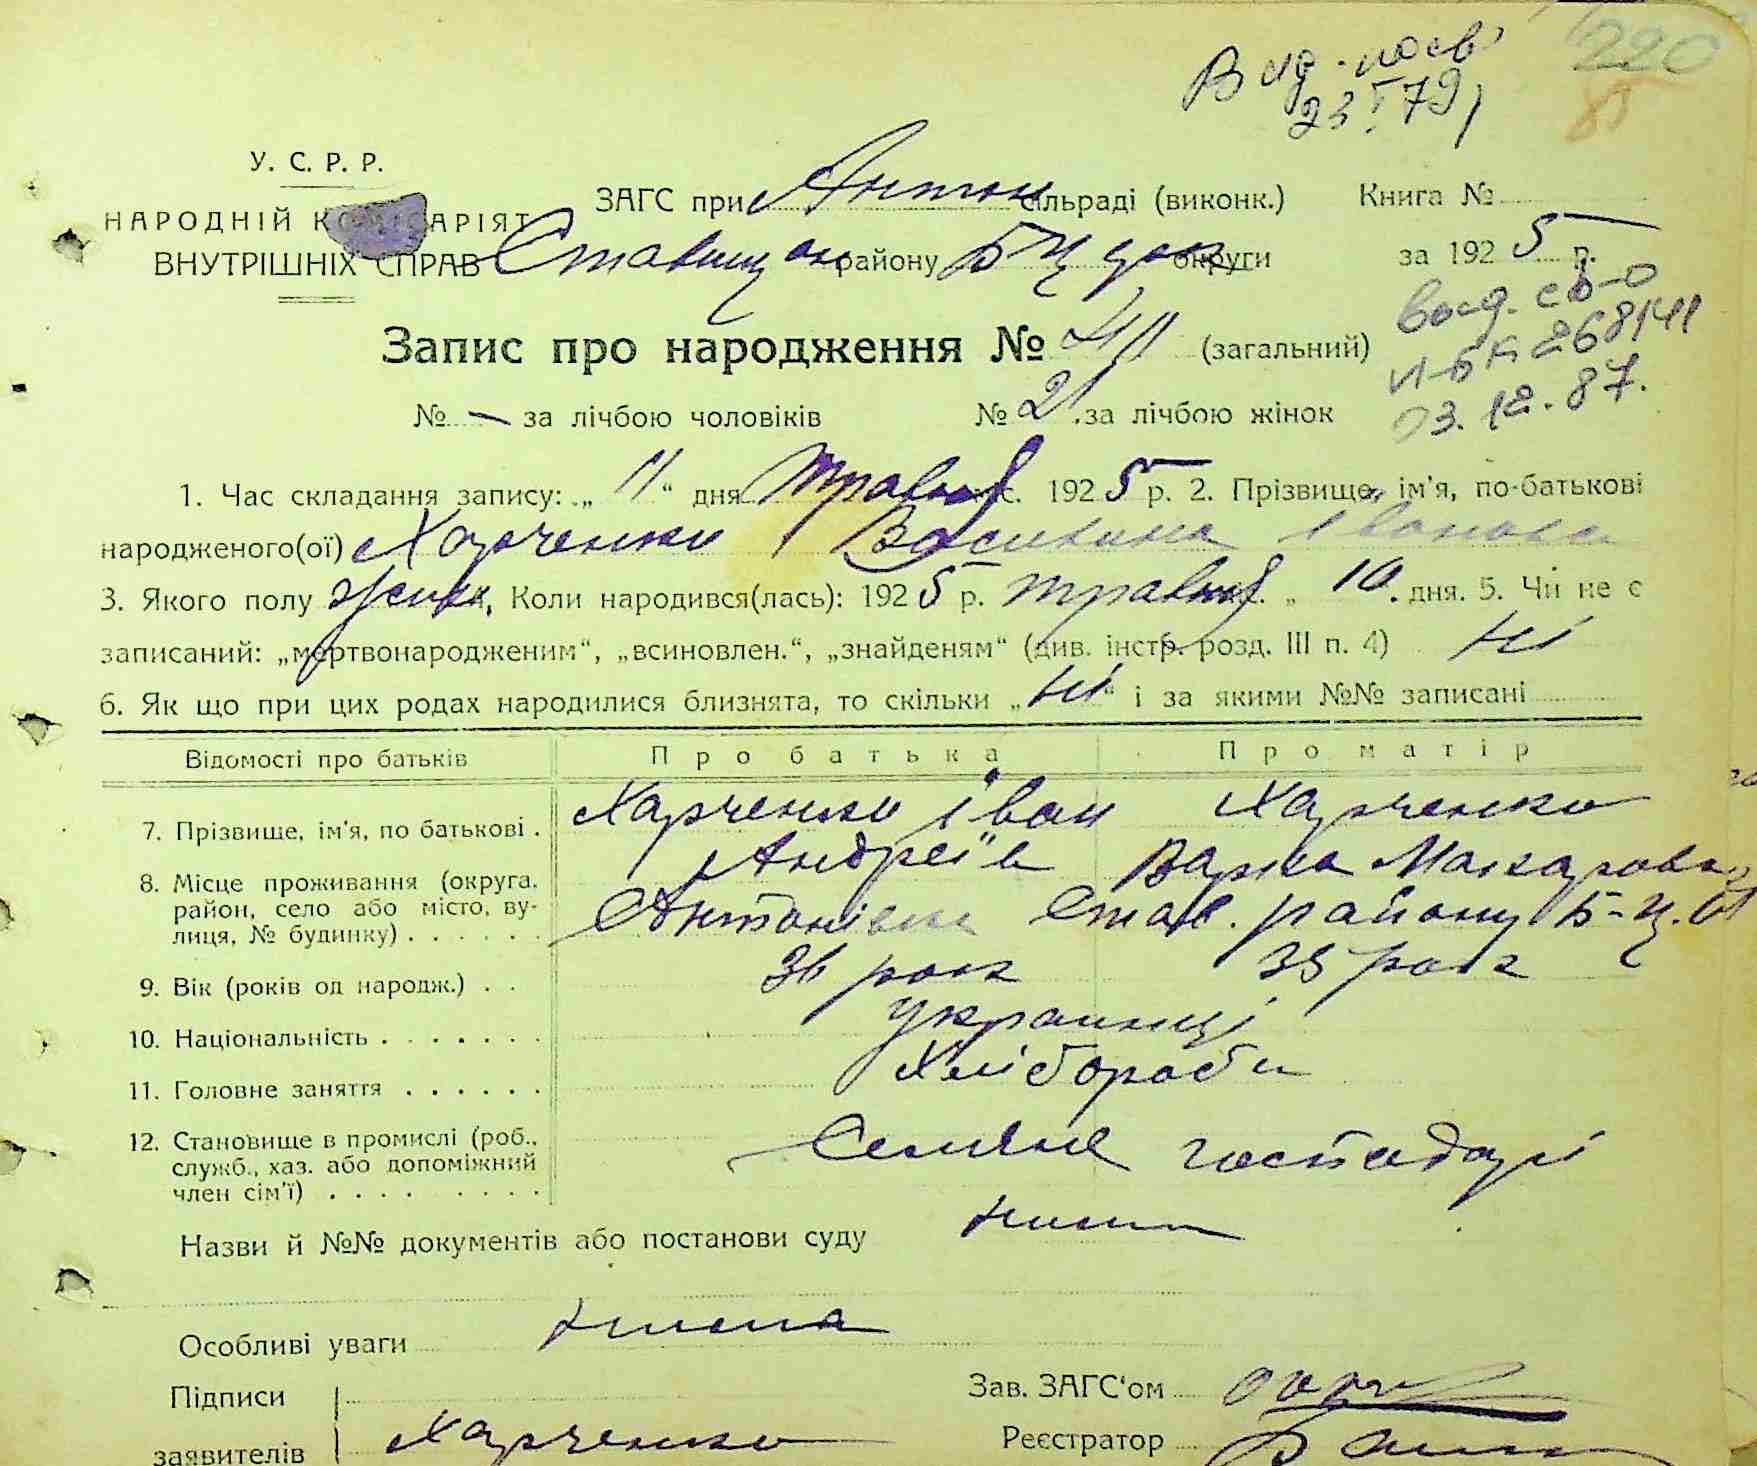 220
Вид. посв
23 I 79
У. С. Р. Р.
НАРОДНІЙ КОМІСАРІЯТ
ВНУТРІШНІХ СПРАВ
ЗАГС при Антон сільраді (виконк.) Книга №
Ставищан району Б Ц округи за 1925 р.
Запис про народження № (загальний)
вид. св-о
268141
03.12.87.
№ — за лічбою чоловіків № 21 за лічбою жінок
1. Час складання запису: „11“ дня травня міс. 1925 р. 2. Прізвище, ім'я, по-батькові
народженого(ої) Харченко Василина Іванова
3. Якого полу жін, Коли народився(лась): 1925 р. травня „10. дня. 5. Чи не є
записаний: „мертвонародженим“, „всиновлен.“, „знайденям“ (див. інстр. розд. III п. 4) Ні
6. Як що при цих родах народилися близнята, то скільки „Ні“ і за якими №№ записані
Відомості про батьків Про батька Про матір
7. Прізвище, ім'я, по батькові . Харченко Іван Харченко
Андреїв Варка Макарова
8. Місце проживання (округа, район, село або місто, ву-
лиця, № будинку) . . . . . . Антонівка Став. району Б-Ц.
9. Вік (років од народж.) . . 36 рок 35 рок
10. Національність . . . . . . . украинці
11. Головне заняття . . . . . . Хлібороби
12. Становище в промислі (роб.,
служб., хаз. або допоміжний
член сім'ї) . . . . . . . . . Селяне господарі
Назви й №№ документів або постанови суду нима
Особливі уваги нима
Підписи Зав. ЗАГС'ом
заявителів Харченко Реєстратор